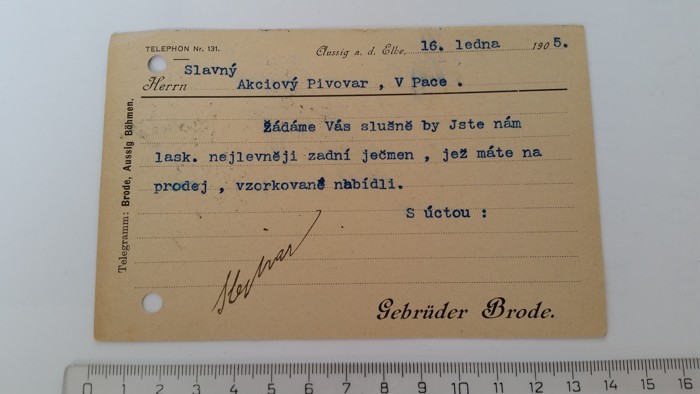 TELEPHON Nr. 131.
Aussig a. d. Elbe, 16. ledna 1905.
Slavný
Herrn Akciový Pivovar , V Pace .
Žádáme Vás slušně by Jste nám
lask. nejlevněji zadní ječmen , jež máte na
prodej , vzorkovaně nabídli.
S úctou :
Gebrüder Brode.
Telegramm: Brode, Aussig Böhmen.
0 1 2 3 4 5 6 7 8 9 10 11 12 13 14 15 16